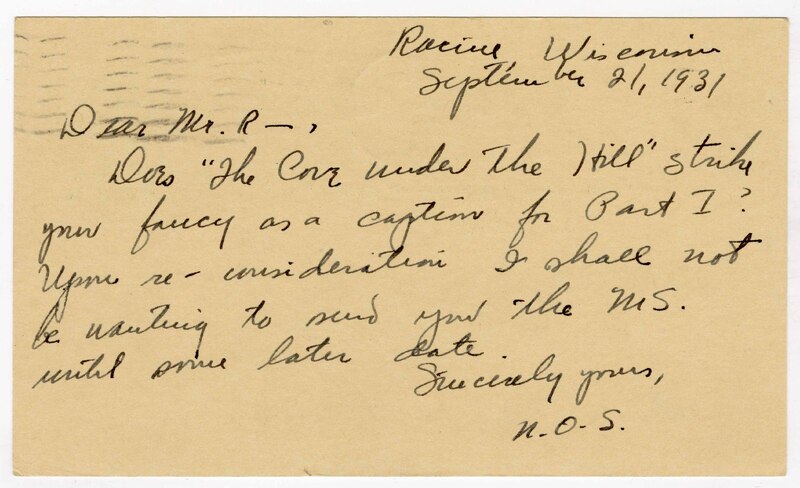 Racine, Wisconsin
September 21, 1931
Dear Mr. R—,
Does "The Cove under the Hill" strike
your fancy as a caption for Part I?
Upon re-consideration I shall not
be wanting to send you the MS.
until some later date.
Sincerely yours,
N.O.S.